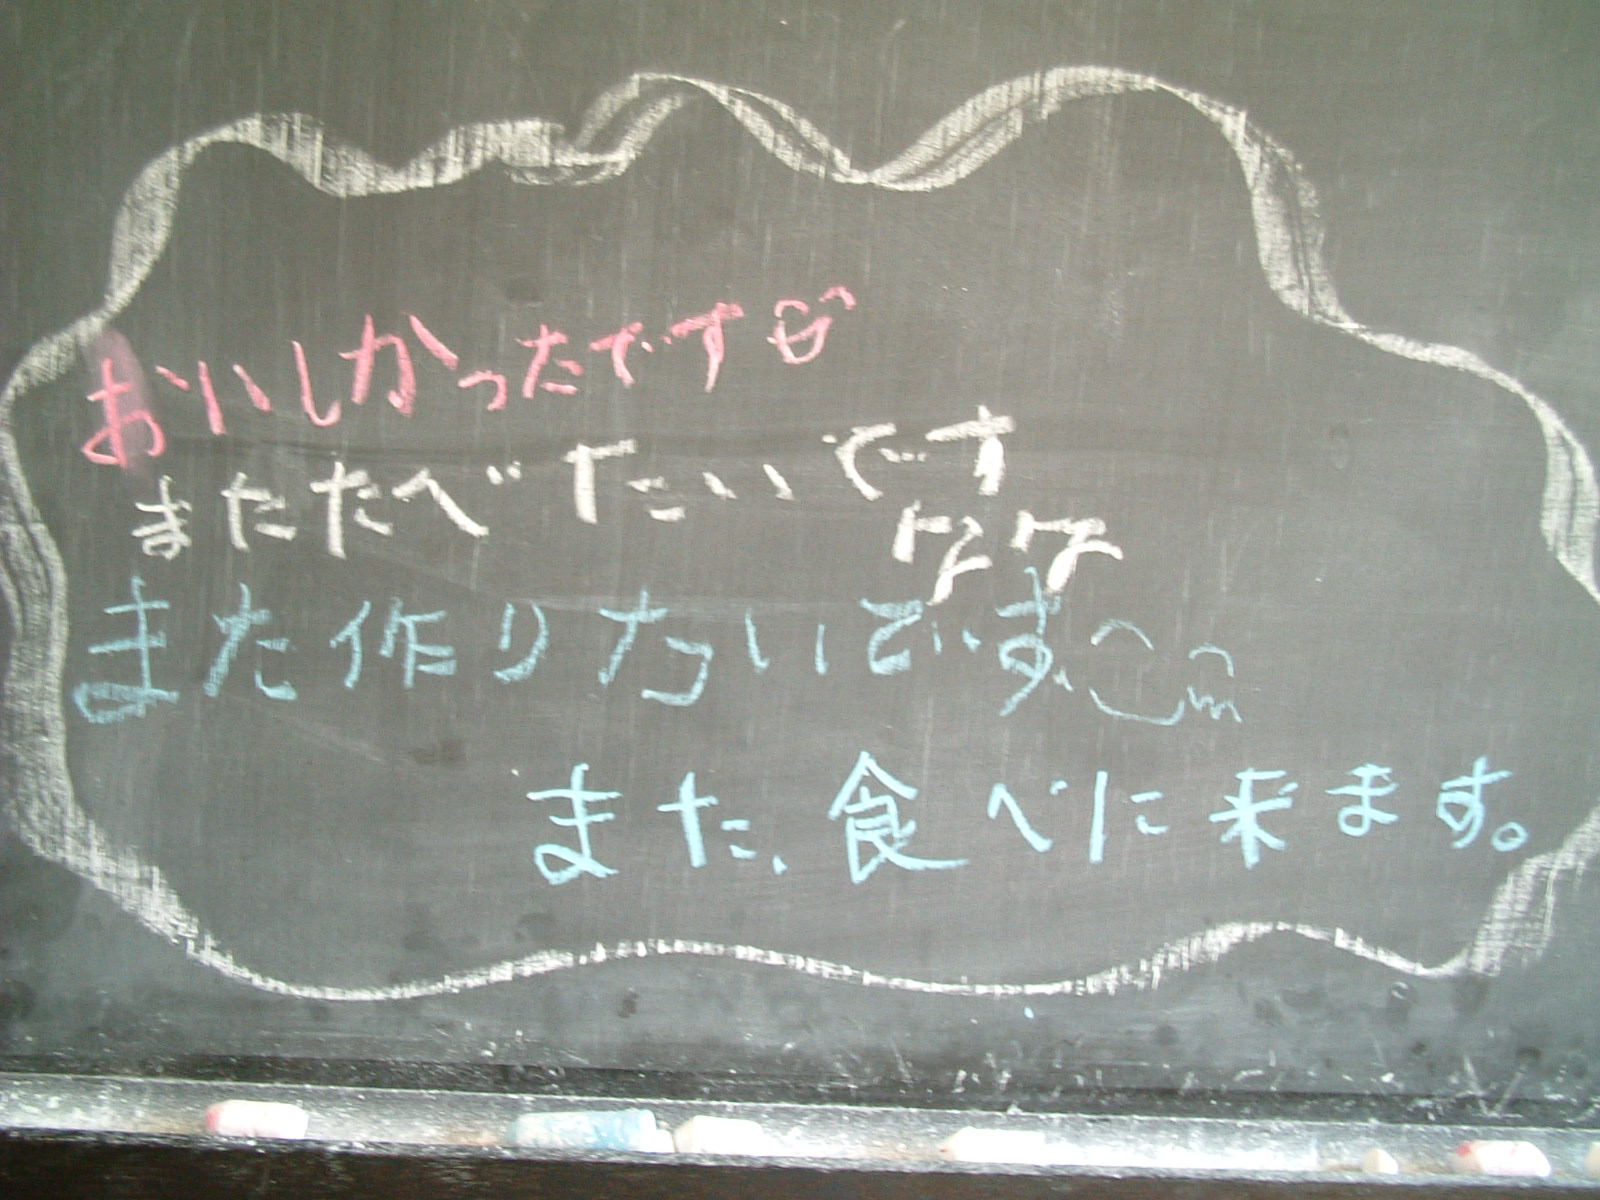 おいしかったです
またたべたいです
また作りたいです。
また、食べに来ます。